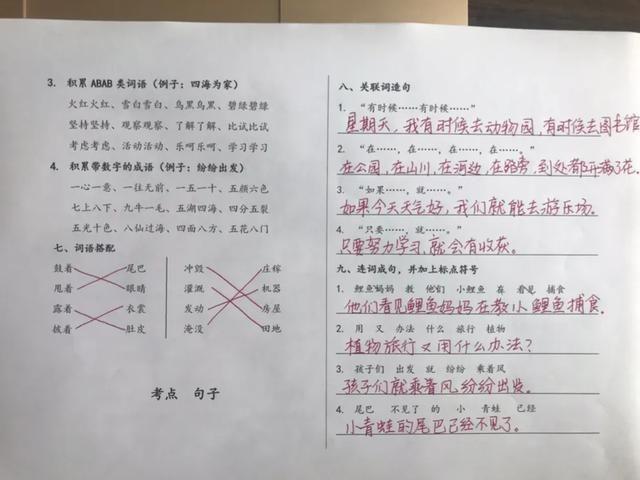 3. 积累ABAB类词语（例子：四海为家）
火红火红、雪白雪白、乌黑乌黑、碧绿碧绿
坚持坚持、观察观察、了解了解、比试比试
考虑考虑、活动活动、乐呵乐呵、学习学习
4. 积累带数字的成语（例子：纷纷出发）
一心一意、一往无前、一五一十、五颜六色
七上八下、九牛一毛、五湖四海、四分五裂
五光十色、八仙过海、四面八方、五花八门
七、词语搭配
鼓着 尾巴 冲毁 庄稼
甩着 眼睛 灌溉 机器
露着 衣裳 发动 房屋
披着 肚皮 淹没 田地
考点 句子
八、关联词造句
1. “有时候……有时候……”
星期天，我有时候去动物园，有时候去图书馆
2. “在……，在……，在……，在……。”
在公园，在山川，在河边，在路旁，到处都开满了花。
3. “如果……，就……。”
如果今天天气好，我们就能去游乐场。
4. “只要……，就……。”
只要努力学习，就会有收获。
九、连词成句，并加上标点符号
1. 鲤鱼妈妈 教 他们 小鲤鱼 在 看见 捕食
他们看见鲤鱼妈妈在教小鲤鱼捕食。
2. 用 又 办法 什么 旅行 植物
植物旅行又用什么办法？
3. 孩子们 出发 就 纷纷 乘着风
孩子们就乘着风纷纷出发。
4. 尾巴 不见了 的 小 青蛙 已经
小青蛙的尾巴已经不见了。